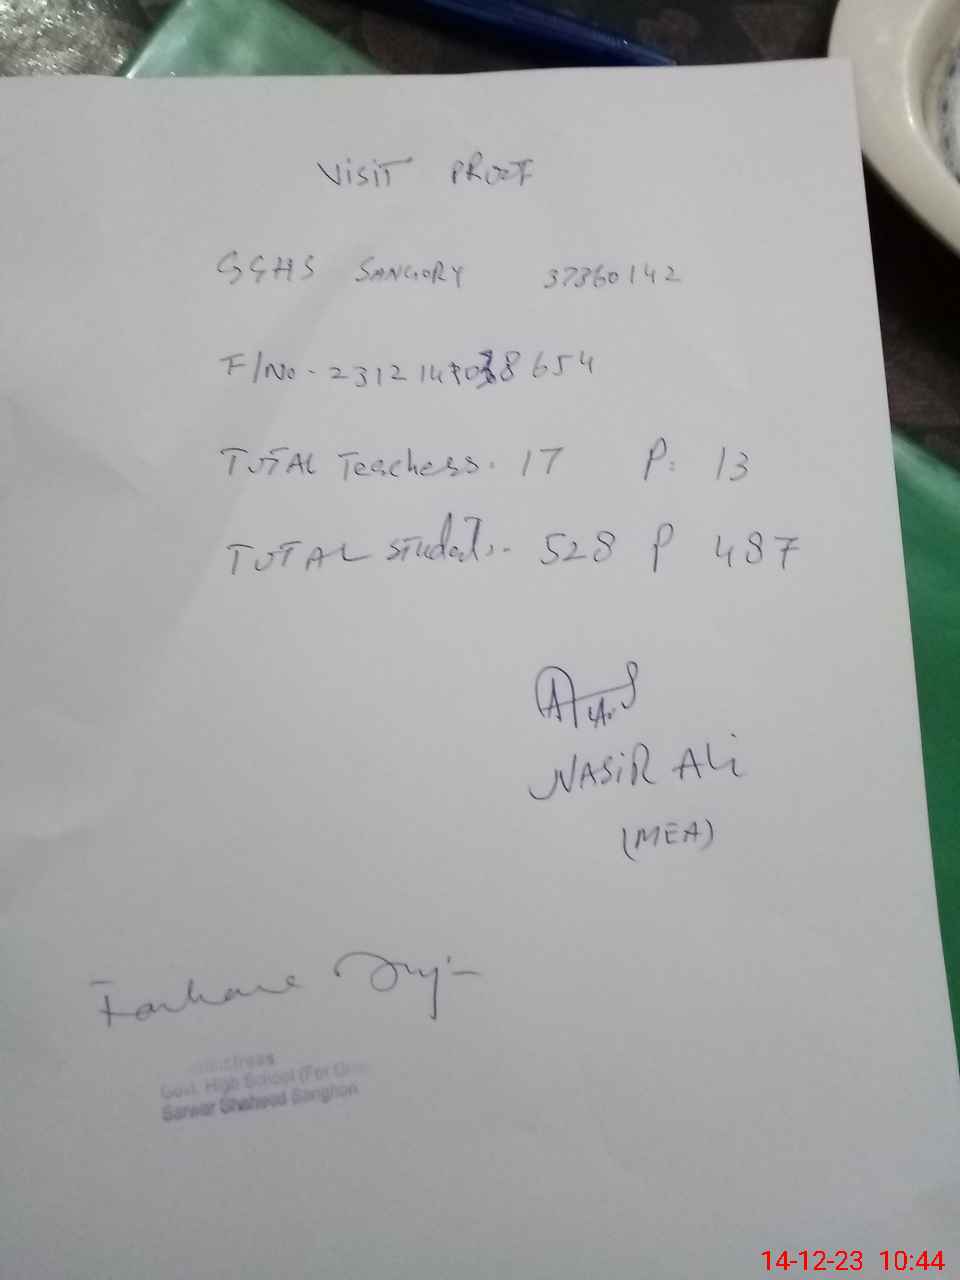 VISIT PROOF
GGHS SANGORY 37360142
F/No - 2312 14
TOTAL Teachers. 17 P: 13
TOTAL Students.. 528 P 487
NASIR ALi
(MEA)
Farhana
Govt. High School (For
Sarwar Shaheed Sanghori
14-12-23 10:44